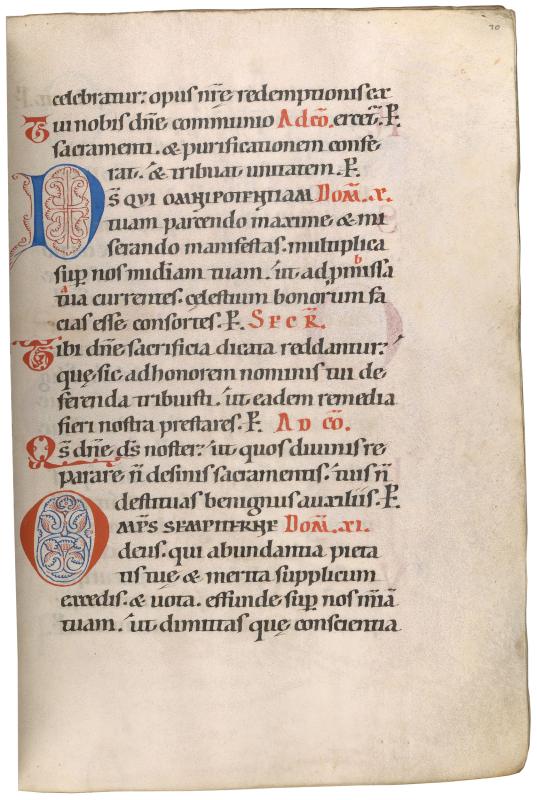 70
celebratur: opus nr̄e redemptionis ex
Tui nobis dn̄e communio Ad cō. ercet̄. P̄.
sacramenti. & purificationem confe
rat. & tribuat unitatem. P̄.
DS̄ QUI OMNIPOTENTIAM Dom̄. x.
tuam parcendo maxime & mi
serando manifestas. multiplica
sup̄ nos mīdiam tuam. ut ad b p̄missa
a tua currentes. celestium bonorum fa
cias esse consortes. P̄. SECR̄.
Tibi dn̄e sacrificia dicata reddantur:
quę sic ad honorem nominis tui de
ferenda tribuisti. ut eadem remedia
fieri nostra prestares. P̄. AD cō.
Qs̄ dn̄e ds̄ noster: ut quos diuinis re
parare n̄ desinis sacramentis. tuis n̄
destituas benignus auxiliis. P̄.
OMPS̄ SEMPITERNE Dom̄. xi.
deus. qui abundantia pieta
tis tuę & merita supplicum
excedis. & uota. effunde sup̄ nos mīā
tuam. ut dimittas quę conscientia